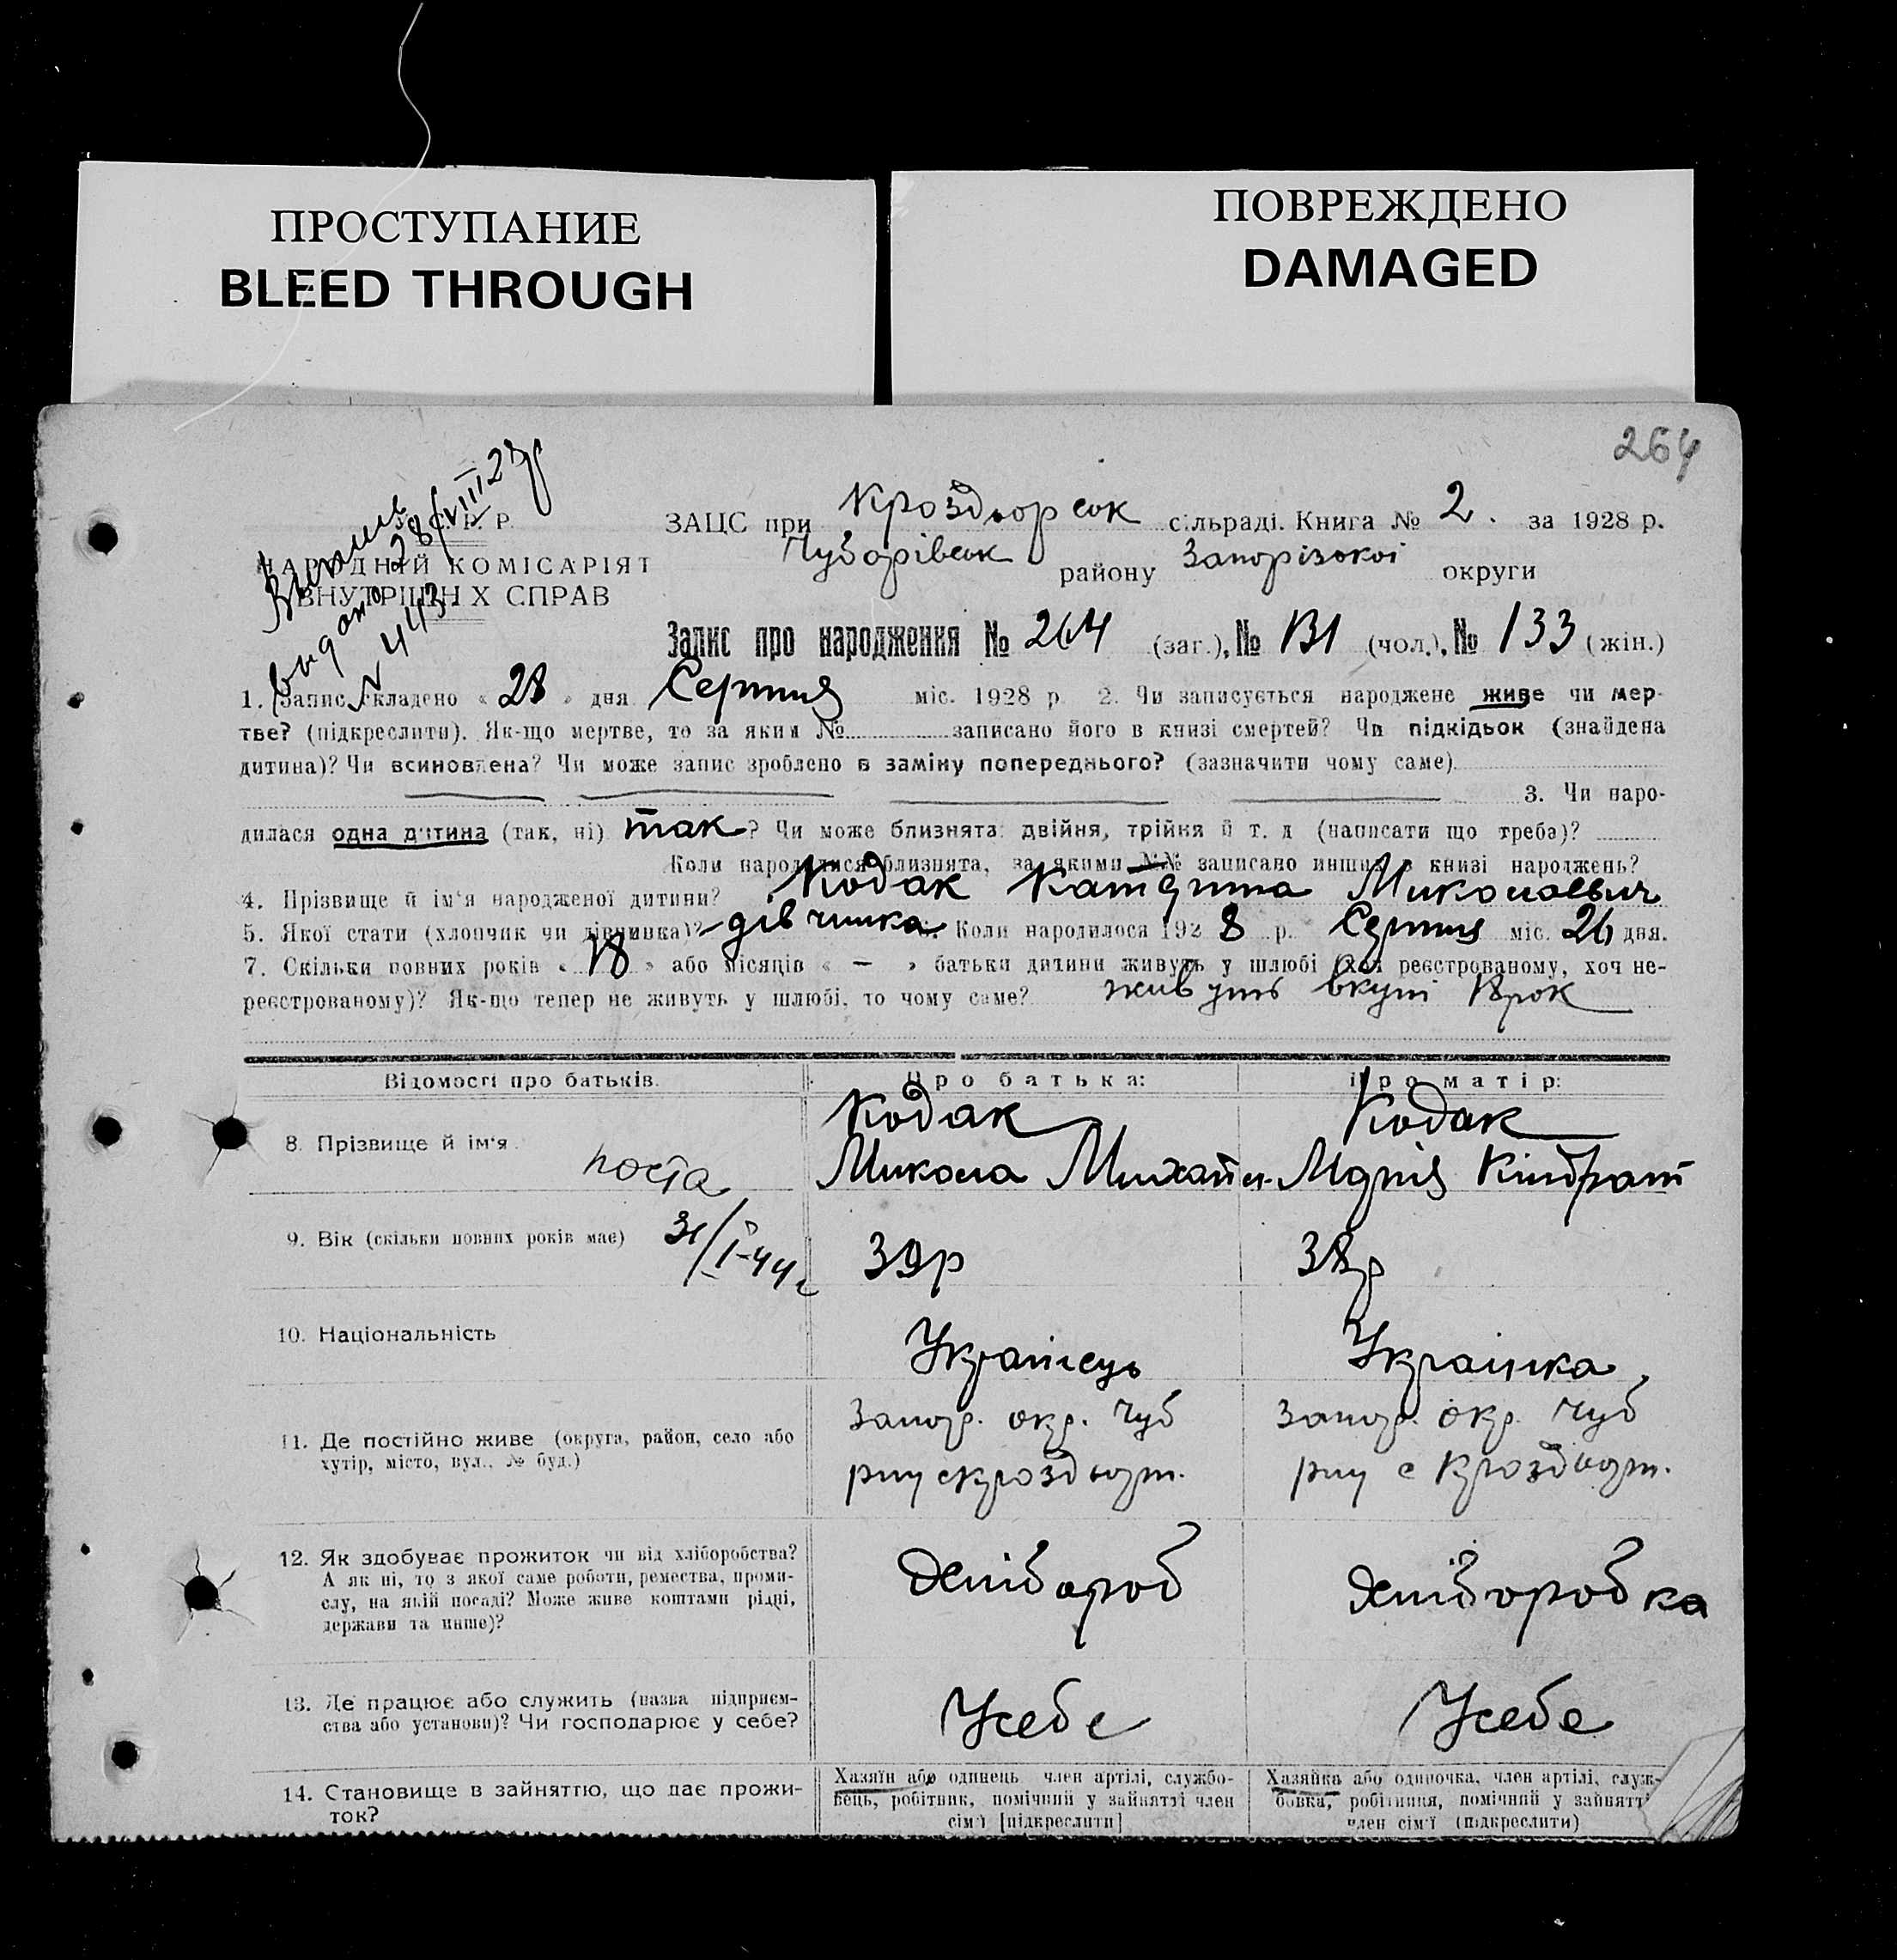 ПРОСТУПАНИЕ
BLEED THROUGH
ПОВРЕЖДЕНО
DAMAGED
264
Р. Р.
НАРОДНИЙ КОМІСАРІЯТ
ВНУТРІШНІХ СПРАВ
видано
N 443
28/VIII 28р
ЗАЦС при сільраді. Книга № 2. за 1928 р.
Чубарівськ району Запорізької округи
Запис про народження № 264 (заг.), № 131 (чол.), № 133 (жін.)
1. Запис складено « 28 » дня Серпня міс. 1928 р. 2. Чи записується народжене живе чи мер-
тве? (підкреслити). Як-що мертве, то за яким № записано його в книзі смертей? Чи підкідьок (знайдена
дитина)? Чи всиновлена? Чи може запис зроблено в заміну попереднього? (зазначити чому саме)
3. Чи наро-
дилася одна дитина (так, ні) так ? Чи може близнята: двійня, трійня й т. д (написати що треба)?
Коли народилися близнята, за якими №№ записано инших в книзі народжень?
4. Прізвище й ім'я народженої дитини? Кодак Катерина Миколаевич
5. Якої стати (хлопчик чи дівчинка)? дівчинка 6. Коли народилося 192 8 р. Серпня міс. 26 дня.
7. Скільки повних років « 18 » або місяців « — » батьки дитини живуть у шлюбі (хоч реєстрованому, хоч не-
реєстрованому)? Як-що тепер не живуть у шлюбі, то чому саме? живуть вкупі 18 рок
Відомості про батьків. Про батька: Про матір:
8. Прізвище й ім'я. Кодак Микола Михайл. Кодак Марія Кіндрат
9. Вік (скільки повних років має) 39р 38р
31/I-44г
10. Національність Українець Українка
11. Де постійно живе (округа, район, село або
хутір, місто, вул., № буд.)
Запор. окр. Чуб
Запор. окр. Чуб
12. Як здобуває прожиток чи від хліборобства?
А як ні, то з якої саме роботи, ремества, проми-
слу, на якій посаді? Може живе коштами рідні,
держави та инше)?
Хлібороб Хліборобка
13. Де працює або служить (назва підприєм-
ства або установи)? Чи господарює у себе?
Усебе Усебе
14. Становище в зайняттю, що дає прожи-
ток?
Хазяїн або одинець член артілі, службо-
вець, робітник, помічний у зайнятті член
сім'ї [підкреслити]
Хазяйка або одиночка, член артілі, служ-
бовка, робітниця, помічний у зайнятті
член сім'ї (підкреслити)